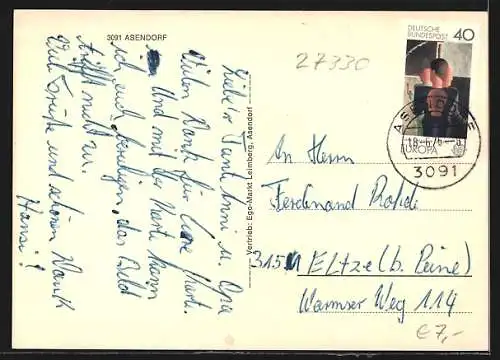 3091 ASENDORF
Liebe Tante Anni u. Opa
Vielen Dank für Eure Karte.
Und mit der Karte kann
ich euch beruhigen, das Bild
trifft nicht zu.
Viele Grüße und schönen Dank
Hansi!
Vertrieb: Ego-Markt Leimberg, Asendorf
27330
DEUTSCHE
BUNDESPOST
40
EUROPA
ASENDORF
3091
An Herrn
Ferdinand Rohde
3151 Eltze (b. Peine)
Warmser Weg 114
€7,-